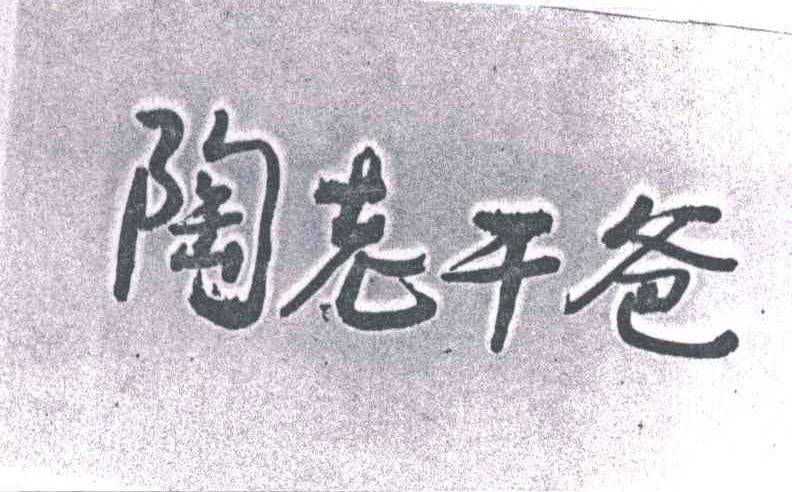 陶老干爸